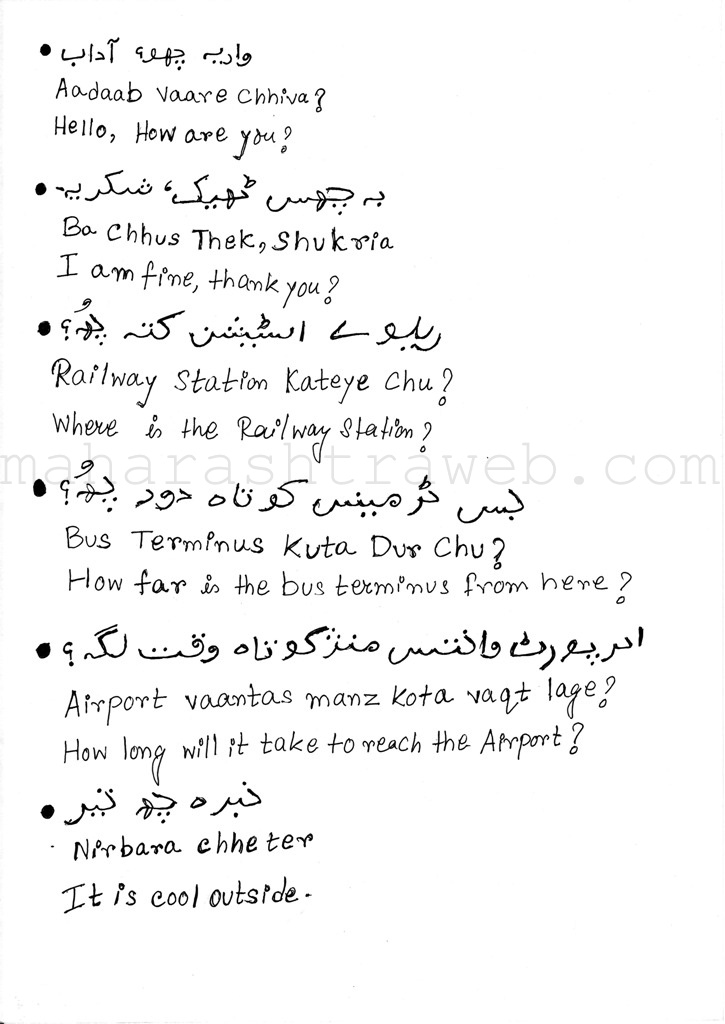 • واریہ چھو؟ آداب
Aadaab vaare chhiva?
Hello, How are you?
• بہ چھس ٹھیک، شکریہ
Ba Chhus Thek, Shukria
I am fine, thank you?
• ریلوے اسٹیشن کتہ چھُ؟
Railway Station Kateye Chu?
Where is the Railway Station?
maharashtraweb.com
• بس ٹرمینس کوتاہ دور چھُ؟
Bus Terminus Kuta Dur Chu?
How far is the bus terminus from here?
• ائرپورٹ واتنس منز کوتاہ وقت لگہ؟
Airport vaantas manz kota vaqt lage?
How long will it take to reach the Airport?
•
Nirbara chheter
It is cool outside.